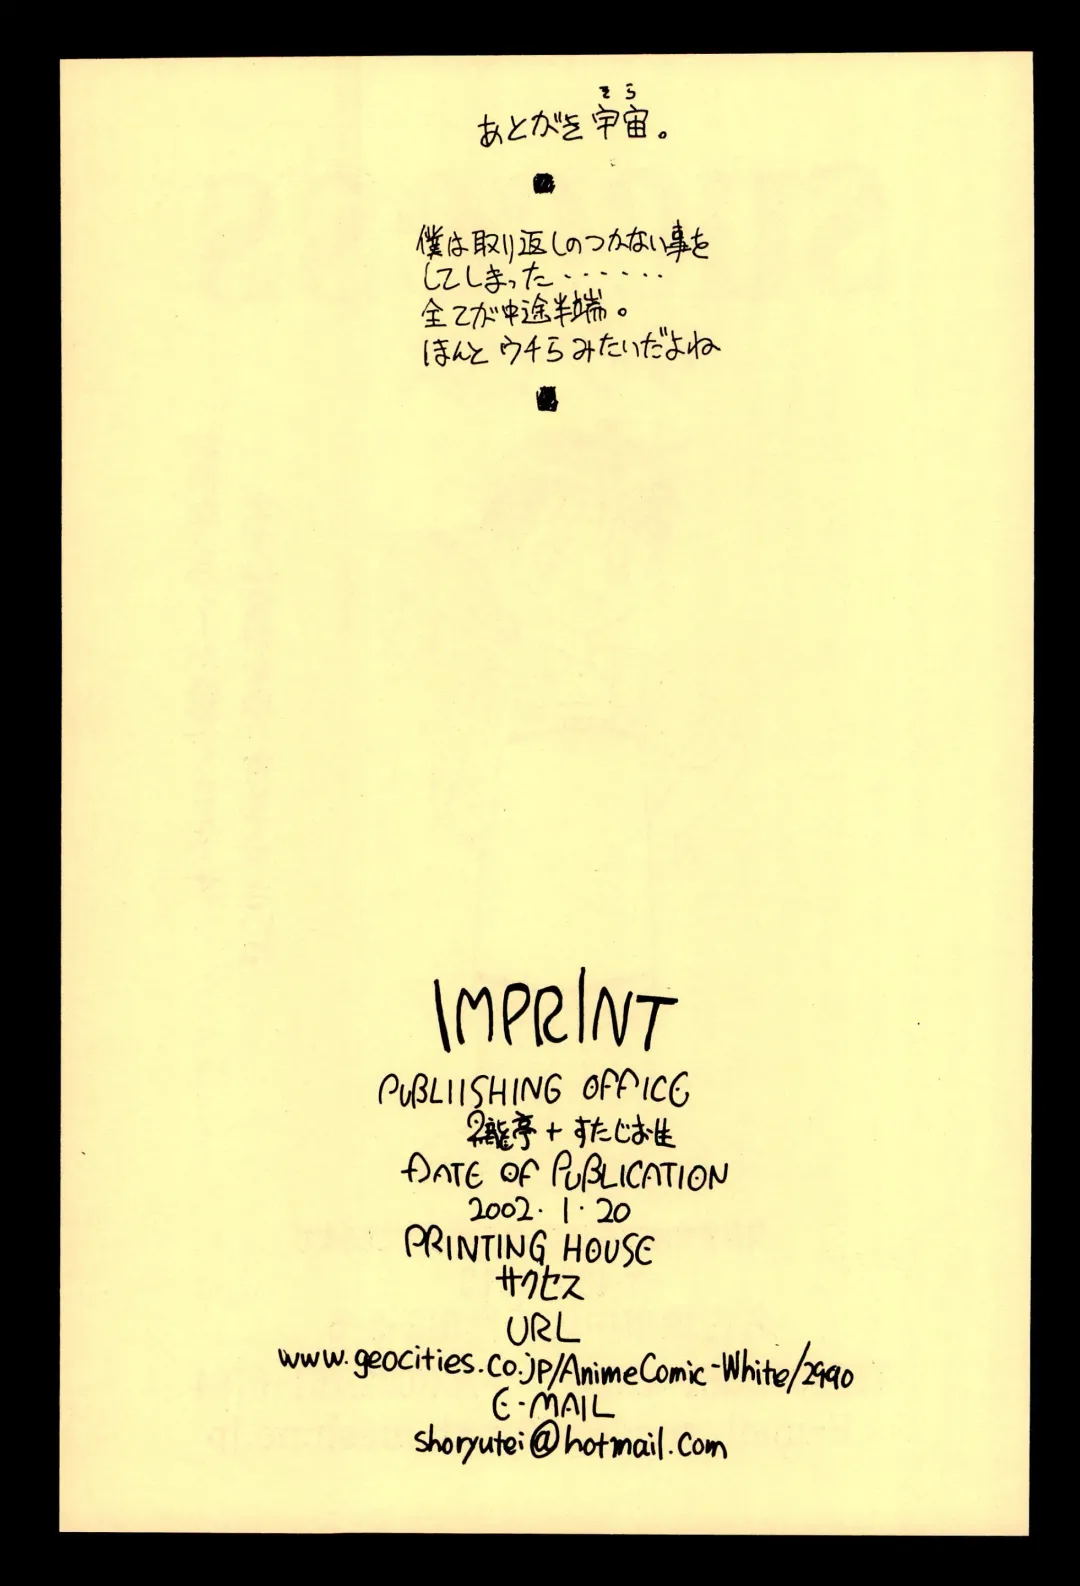 そら
あとがき宇宙。
僕は取り返しのつかない事を
してしまった・・・・・・
全てが中途半端。
ほんとウチらみたいだよね
IMPRINT
PUBLIISHING OFFICE
龍亭+すたじお生
DATE OF PUBLICATION
2002.1.20
PRINTING HOUSE
サクセス
URL
www.geocities.co.jp/AnimeComic-White/2990
E-MAIL
shoryutei@hotmail.com